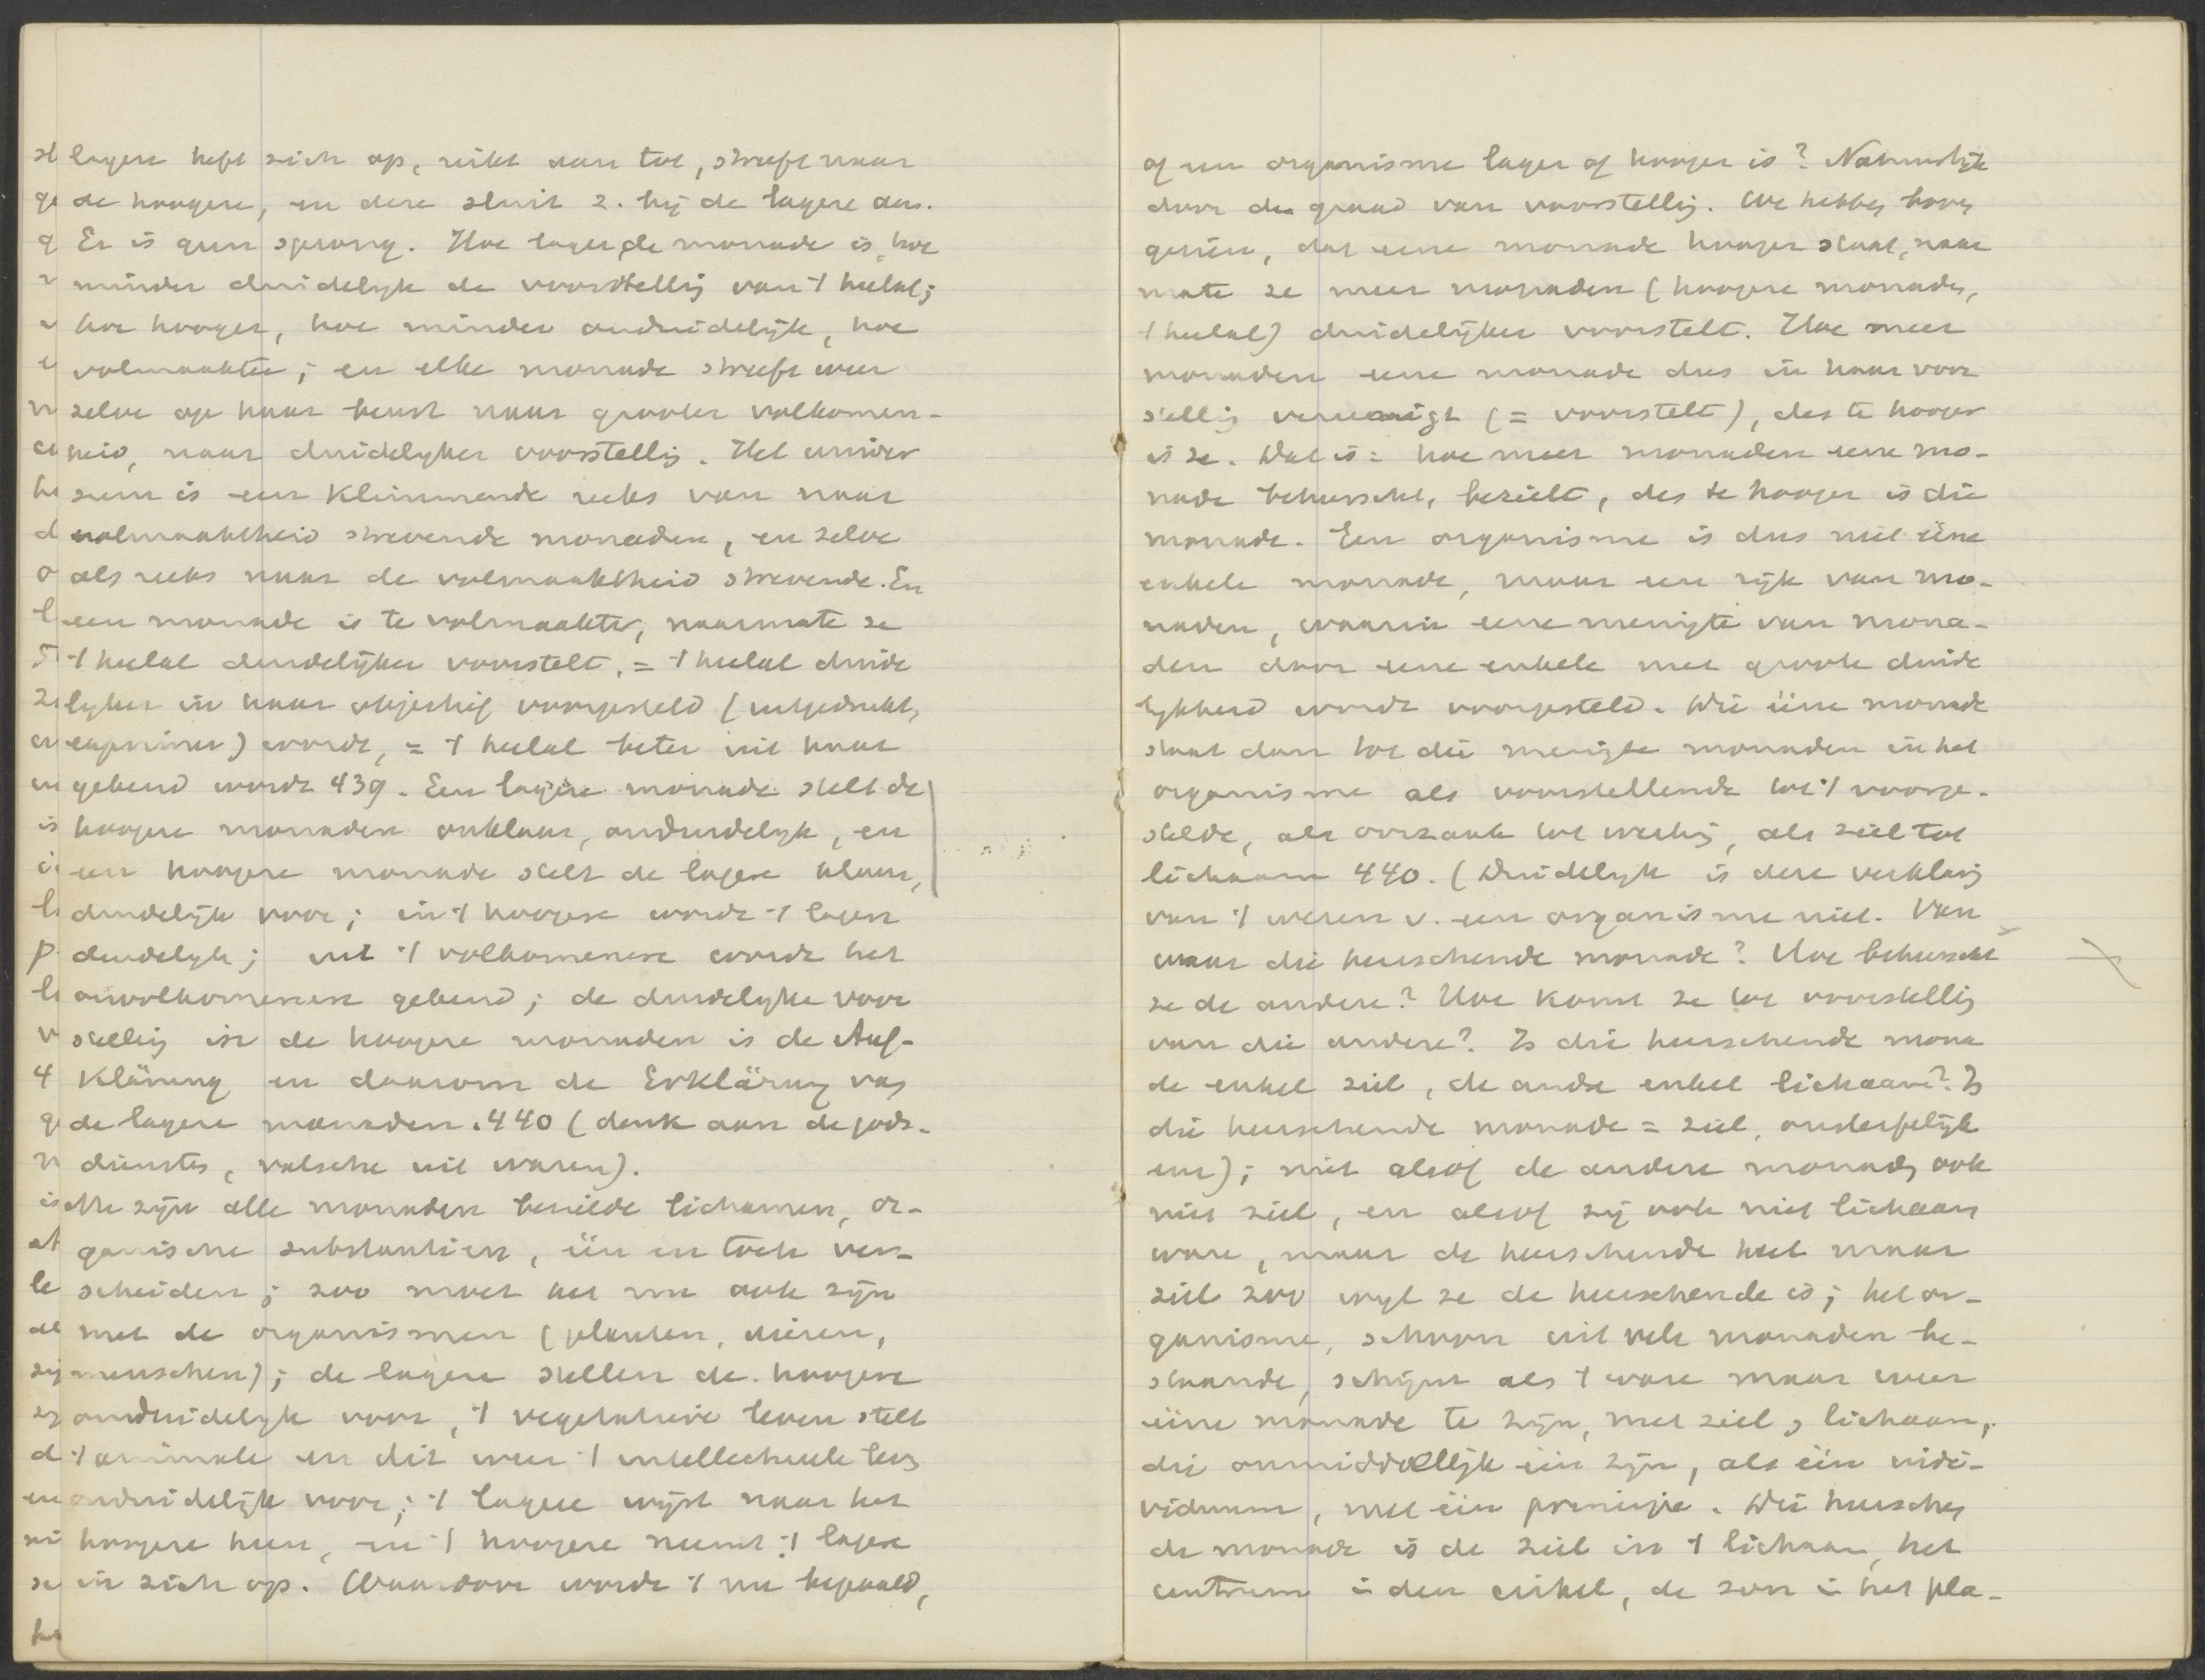 lagere heft zich op, reikt aan tot, streeft naar
de hoogere, en deze sluit z. bij de lagere aan.
Er is geen sprong. Hoe lager de monade is, hoe
minder duidelyk de voorstellig van 't heelal;
hoe hooger, hoe minder onduidelijk, hoe
volmaakter; en elke monade streeft weer
zelve op haar beurt naar grooter volkomen-
heid, naar duidelyker voorstellig. Het univer
sum is een klimmende reeks van naar
volmaaktheid strevende monaden, en zelve
als reeks naar de volmaaktheid strevende. En
een monade is te volmaakter, naarmate ze
't heelal duidelijker voorstelt, = 't heelal duide
lyker in haar objectief voorgesteld (uitgedrukt,
exprimer) wordt, = 't heelal beter uit haar
gekend wordt 439. Een lagere monade stelt de
hoogere monaden onklaar, onduidelyk, en
een hoogere monade stelt de lagere klaar,
duidelijk voor; in 't hoogere wordt 't lagere
duidelyk; uit 't volkomenere wordt het
onvolkomenere gekend; de duidelyke voor
stellig in de hoogere monaden is de Auf-
klärung en daarom de Erklärung van
de lagere monaden. 440 (denk aan de gods-
diensten, valsche uit waren).
Nu zijn alle monaden bezielde lichamen, or-
ganische substantien, één en toch ver-
scheiden; zoo moet het nu ook zijn
met de organismen (planten, dieren,
menschen); de lagere stellen de hoogere
onduidelyk voor, 't vegetatieve leven stelt
't animale en dit weer 't intellectueele leven
onduidelijk voor; 't lagere wijst naar het
hoogere heen, en 't hoogere neemt 't lagere
in zich op. Waardoor wordt 't nu bepaald,
of een organisme lager of hooger is? Natuurlijk
door de graad van voorstellig. We hebben boven
gezien, dat eene monade hooger staat, naar
mate ze meer monaden (hoogere monaden,
't heelal) duidelijker voorstelt. Hoe meer
monaden eene monade dus in haar voor
stellig vereenigt (= voorstelt), des te hooger
is ze. Dat is: hoe meer monaden eene mo-
nade beheerscht, bezielt, des te hooger is die
monade. Een organisme is dus niet ééne
enkele monade, maar een rijk van mo-
naden, waarin eene menigte van mona-
den door eene enkele met groote duide
lykheid wordt voorgesteld. Die ééne monade
staat dan tot die menigte monaden in het
organisme als voorstellende tot 't voorge-
stelde, als oorzaak tot werkig, als ziel tot
lichaam 440. (Duidelyk is deze verklarig
van 't wezen v. een organisme niet. Van
waar die heerschende monade? Hoe beheerscht
ze de andere? Hoe komt ze tot voorstellig
van die andere? Is die heerschende mona
de enkel ziel, de andre enkel lichaam? Is
die heerschende monade = ziel, onsterfelijk
enz); niet alsof de andere monaden ook
niet ziel, en alsof zij ook niet lichaam
ware, maar de heerschende heet maar
ziel zoo wyl ze de heerschende is; het or-
ganisme, schoon uit vele monaden be-
staande, schijnt als 't ware maar weer
ééne monade te zijn, met ziel en lichaam,
die onmiddellijk één zijn, als één indi-
viduum, met één principe. Die heerschen
de monade is de ziel in 't lichaam, het
centrum in den cirkel, de zon in het pla-